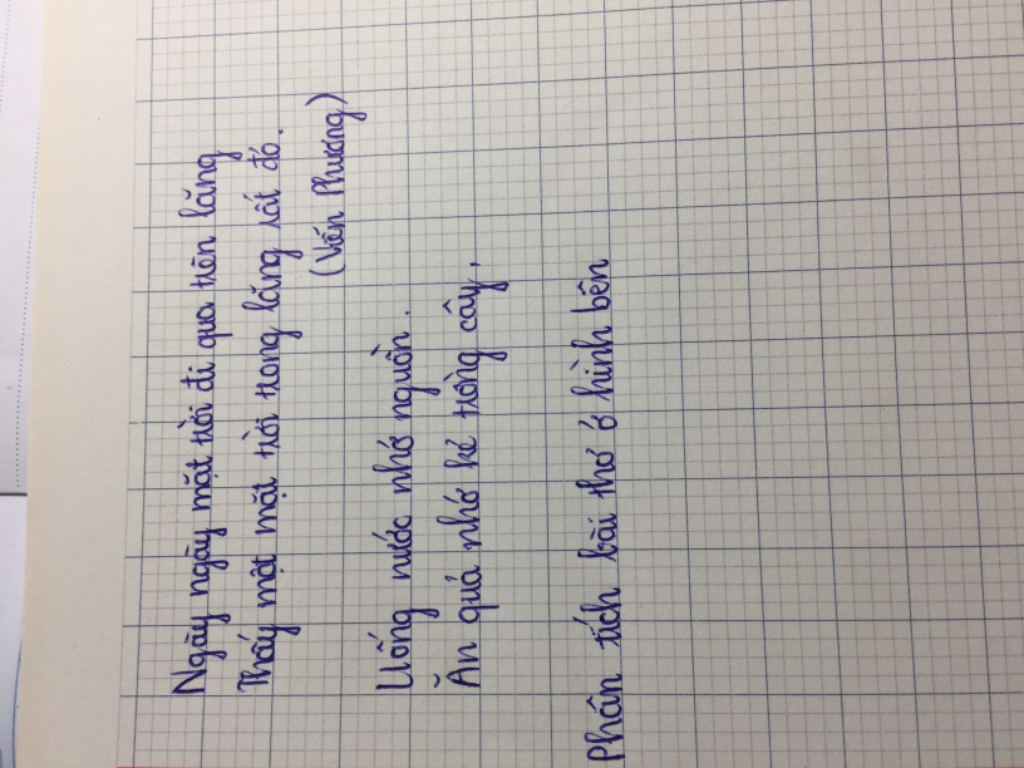 Ngày ngày mặt trời đi qua trên lăng
Thấy một mặt trời trong lăng rất đỏ.
(Viễn Phương)
Uống nước nhớ nguồn.
Ăn quả nhớ kẻ trồng cây.
Phân tích bài thơ ở hình bên